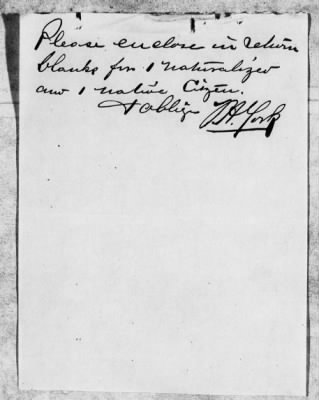 Please enclose in return
blanks for 1 naturalized
and 1 native Citizen.
& oblige
York